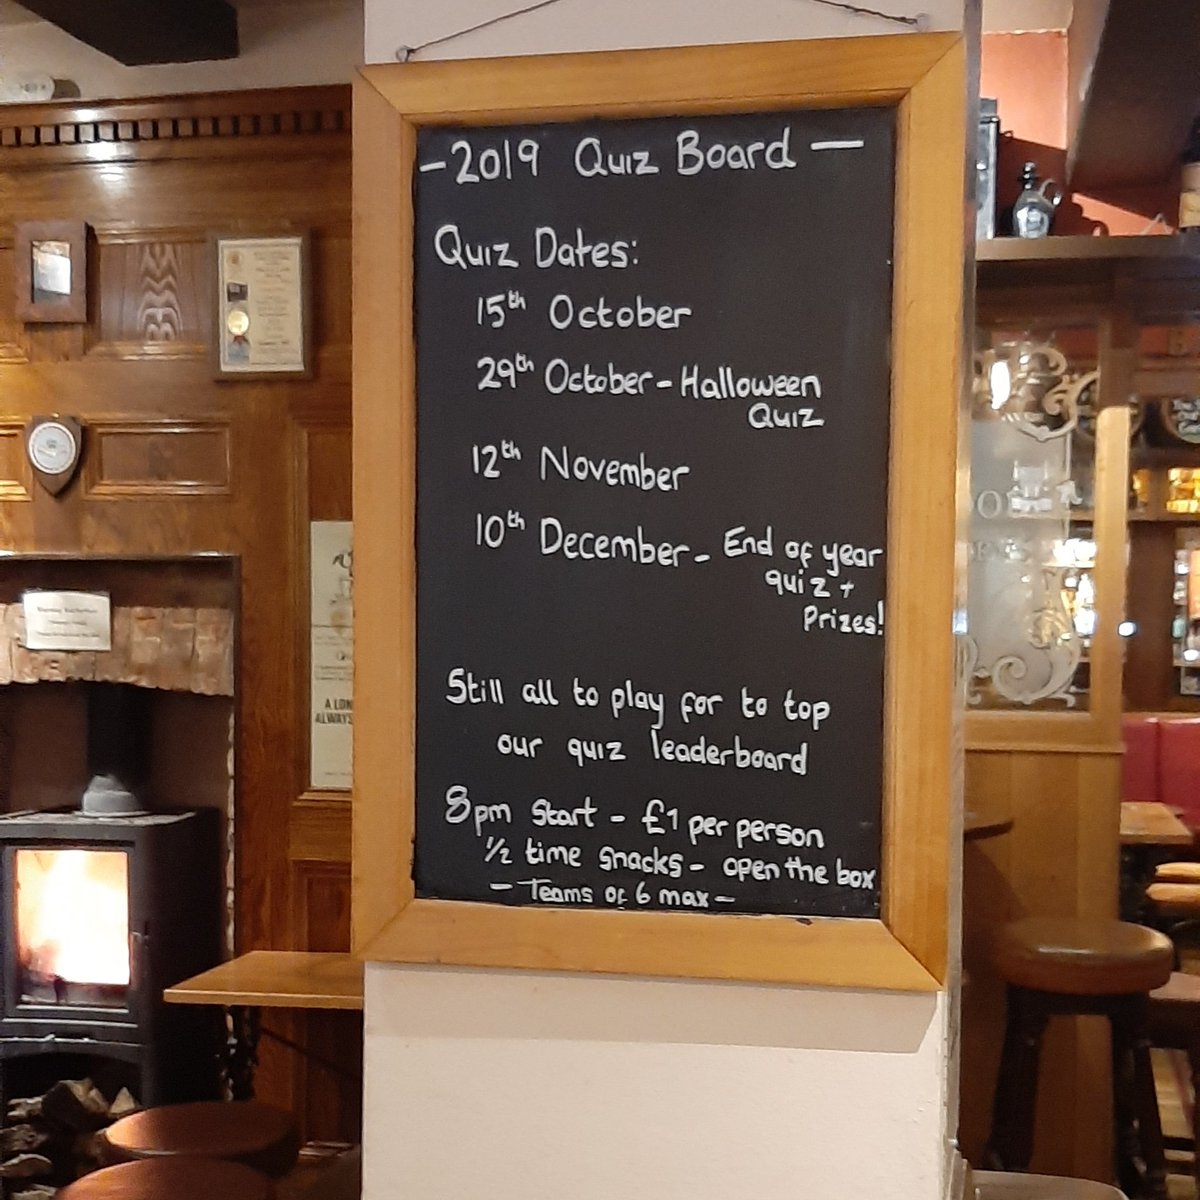 - 2019 Quiz Board -
Quiz Dates:
15th October
29th October - Halloween
Quiz
12th November
10th December - End of year
quiz +
Prizes!
Still all to play for to top
our quiz leaderboard
8pm Start - £1 per person
1/2 time snacks - open the box
- Teams of 6 max -
A LON
ALWAYS